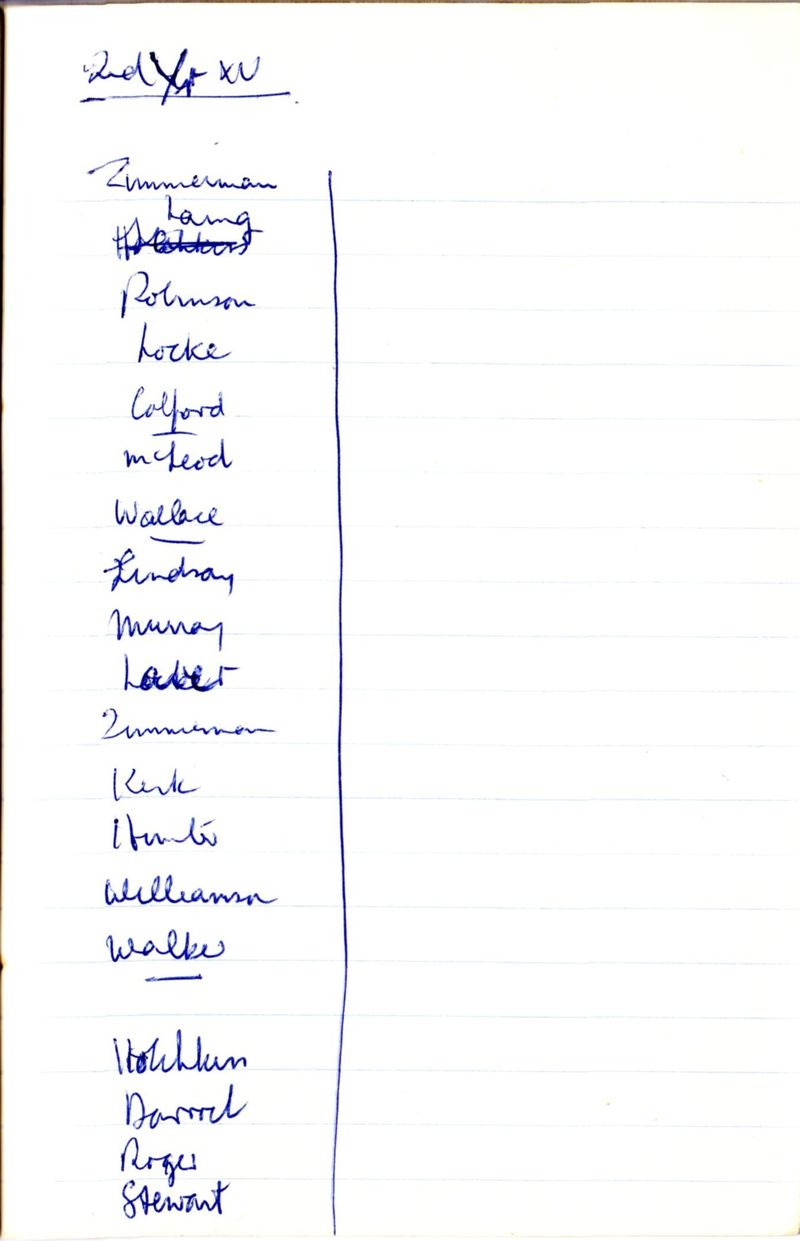 2nd Yr XV
Zimmerman
Laing
Robinson
Locke
Colford
McLeod
Wallace
Lindsay
Murray
Zimmerman
Kerk
Hunter
Williamson
Walker
Darroch
Roger
Stewart